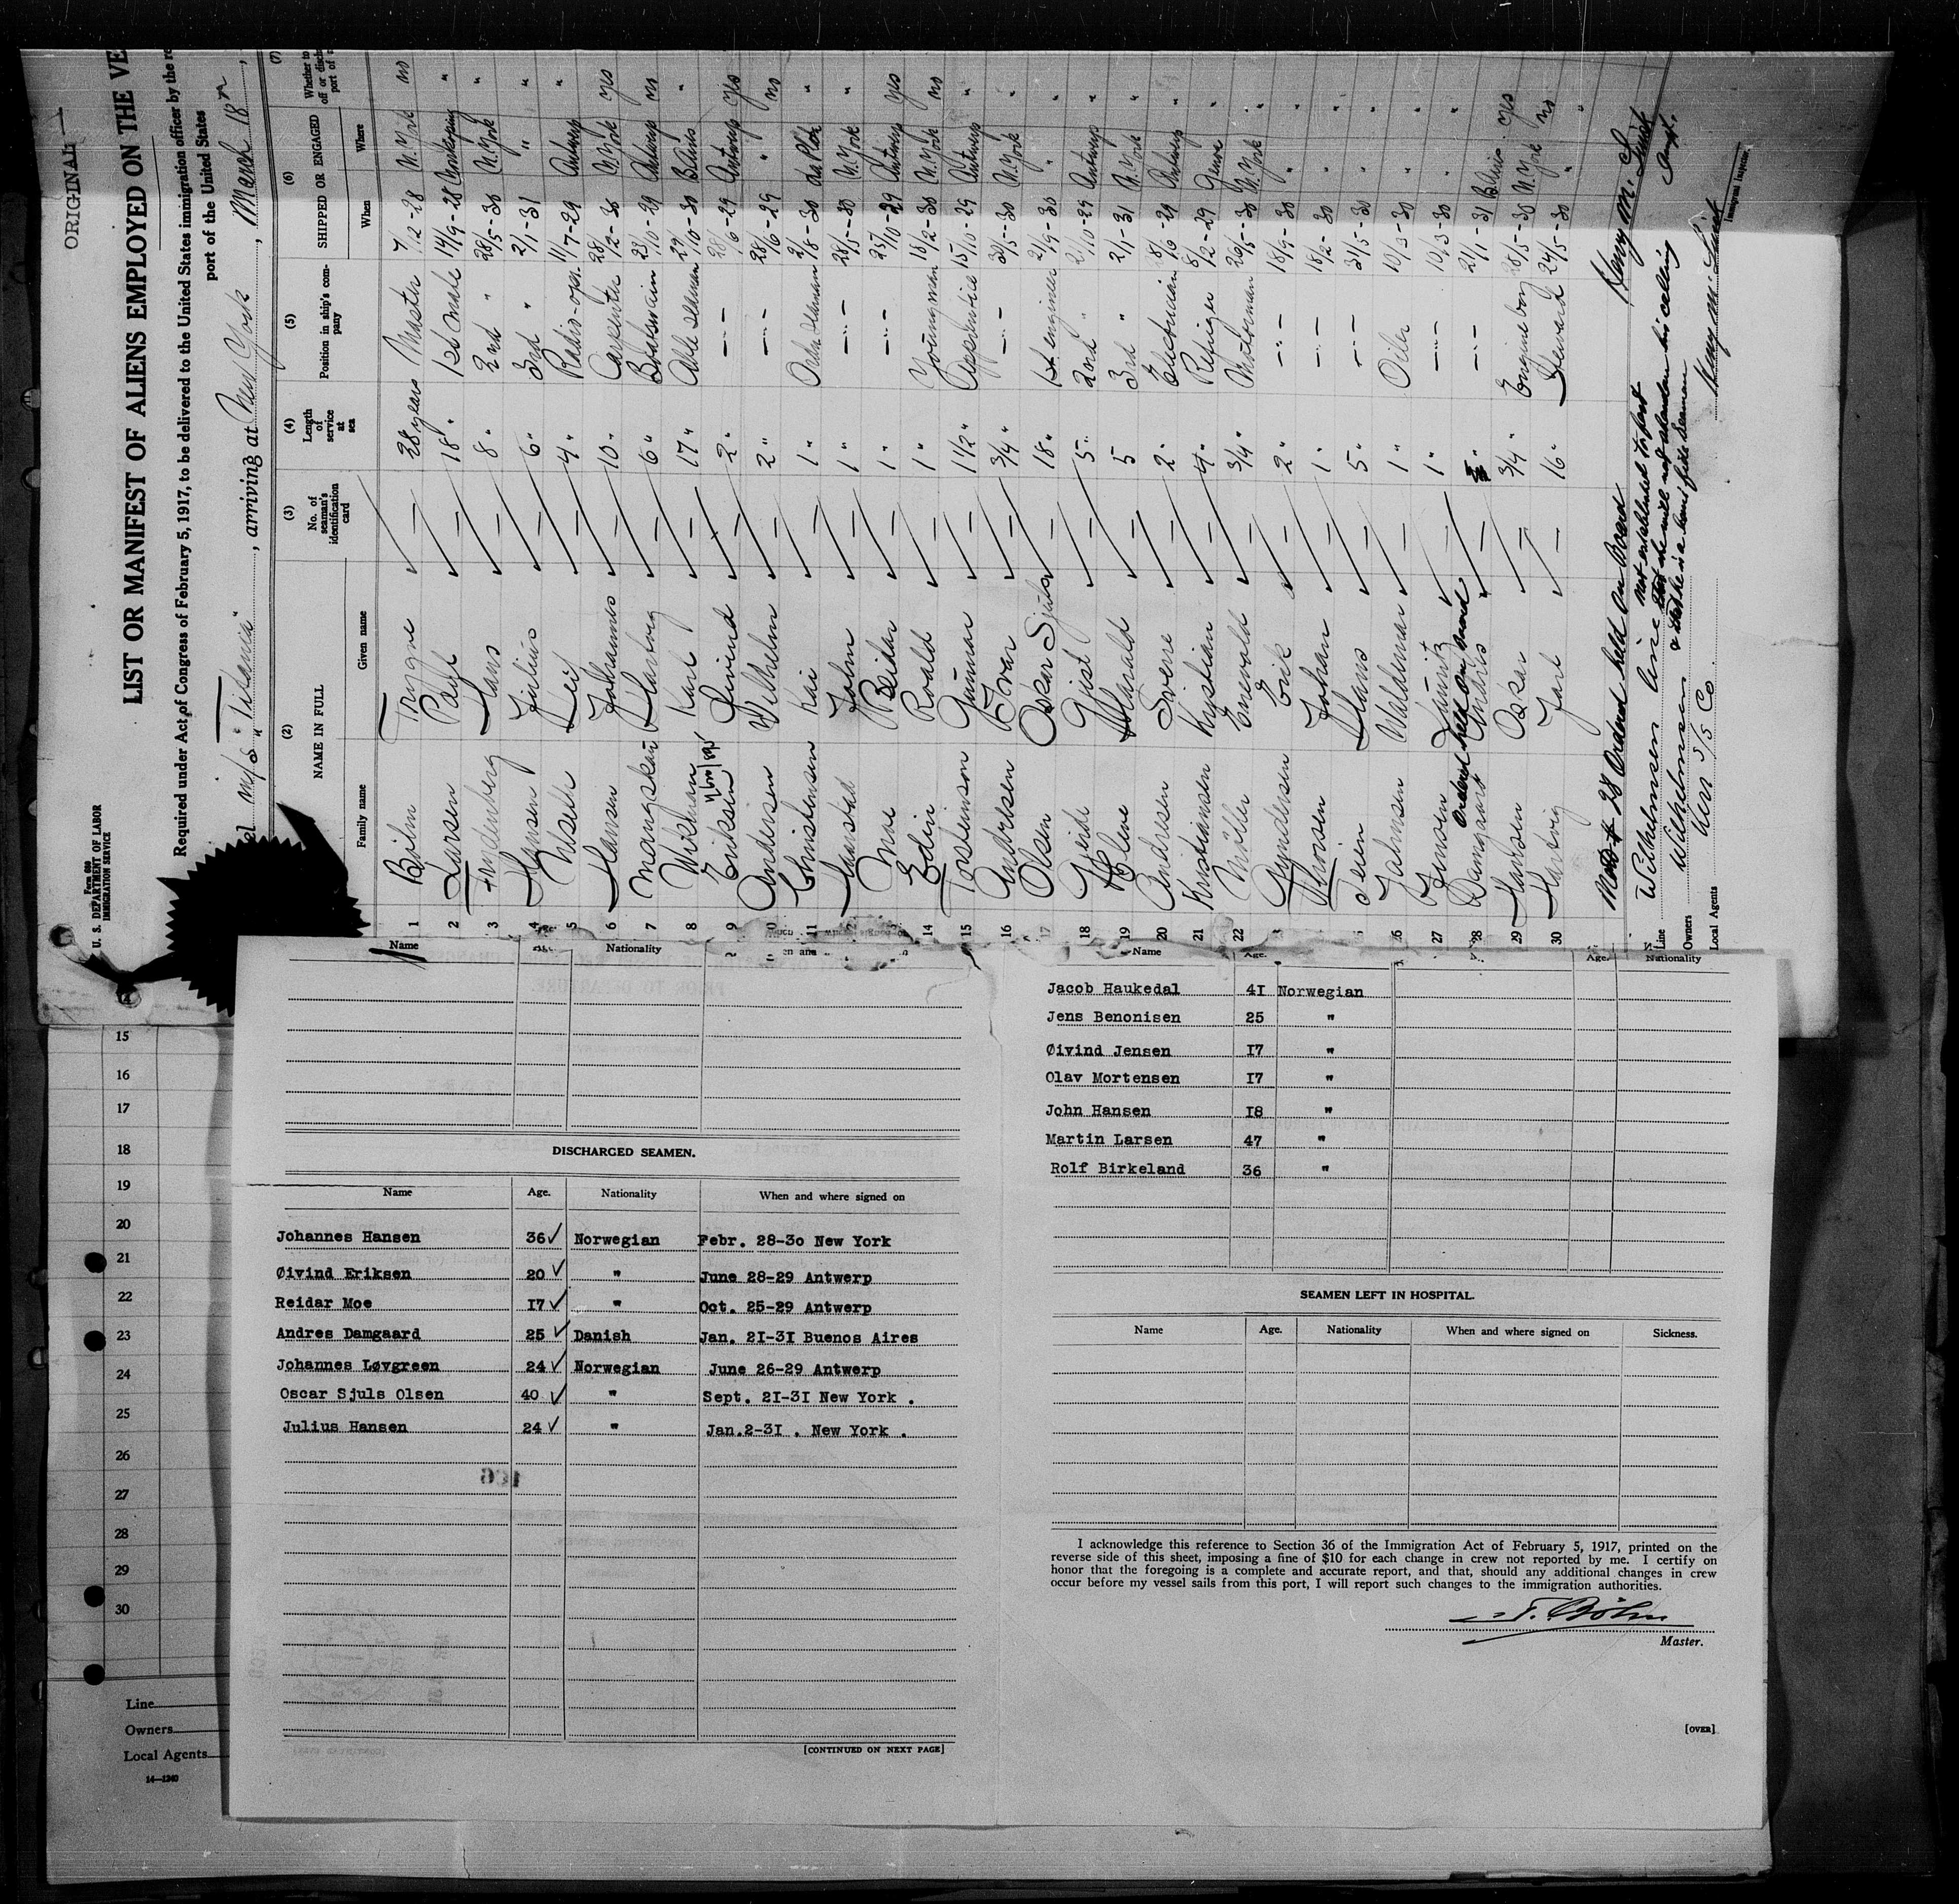 ORIGINAL
Form 680
U. S. DEPARTMENT OF LABOR
IMMIGRATION SERVICE
LIST OR MANIFEST OF ALIENS EMPLOYED ON THE VE
Required under Act of Congress of February 5, 1917, to be delivered to the United States immigration officer by the re
port of the United States
el m/s "Titania", arriving at New York, March 18th,
(2) (3) (4) (5) (6) (7)
NAME IN FULL
No. of seaman's identification card
Length of service at sea
Position in ship's company
SHIPPED OR ENGAGED
Whether to
off or disch
port of
Family name Given name When Where
1 Böhm Trygve — 28 years Master 7/12-28 N. York no
2 Larsen — 18 " 1st mate 14/9-28 "
3 Hans — 8 " 2nd " 28/5-30 N. York "
4 Hansen Julius — 6 " 3rd " 2/1-31 " "
5 Leif — 4 " Radio-opr. 11/7-29 Antwerp "
6 Hansen Johannes — 10 " Carpenter 28/2-30 N. York yes
7 — 6 " Boatswain 23/10-29 Antwerp no
8 Karl — 17 " Able seaman 29/10-30 B. Aires "
9 Eriksen Øivind — 2 " —"— 28/6-29 Antwerp yes
10 Andersen Wilhelm — 2 " —"— 28/6-29 " no
11 Christensen Kai — 1 " 2/8-30 La Plata "
12 John — 1 " —"— 28/5-30 N. York "
13 Moe Reidar — 1 " —"— 25/10-29 Antwerp yes
14 Edin Roald — 1 " Youngman 18/2-30 N. York no
15 Gunnar — 1 1/2 " Apprentice 15/10-29 Antwerp "
16 Andresen Ivar — 3/4 " —"— 31/5-30 N. York "
17 Olsen Oskar Sjuls 18 " 1st engineer 21/9-30 " "
18 Gjeide — 5 " 2nd " 21/10-29 Antwerp "
19 Harald — 5 3rd " 2/1-31 N. York "
20 Andresen Sverre — 2 " Electrician 28/6-29 Antwerp "
21 Kristiansen Kristian — 4 " 8/12-29 "
22 Møller Enevold — 3/4 " Motorman 26/5-30 N. York "
Gundersen Erik — 2 " —"— 18/9-30 " "
Thorsen Johan — 1 " —"— 18/2-30 " "
Hans — 5 " —"— 31/5-30 " "
26 Waldemar — 1 " Oiler 10/3-30 " "
27 Jensen Lauritz — 1 " —"— 10/3-30 " "
28 Damgaard Andres — " —"— 21/1-31 B. Aires yes
Ordered held on board
29 Hansen Oskar — 3/4 " Engine boy 28/5-30 N. York no
30 Hartvig Jarl — 16 " Steward 24/5-30 " "
28 Ordered held on Board
not established to fact
that he will not abandon his calling
& that he is a bona fide seaman
Henry M.
Line Wilhelmsen Line
Owners Wilhelmsen
Local Agents Norr S/S Co
Immigrant Inspector.
Name Age. Nationality
DISCHARGED SEAMEN.
Name Age. Nationality When and where signed on
Johannes Hansen 36 Norwegian Febr. 28-30 New York
Øivind Eriksen 20 " June 28-29 Antwerp
Reidar Moe 17 " Oct. 25-29 Antwerp
Andres Damgaard 25 Danish Jan. 21-31 Buenos Aires
Johannes Løvgreen 24 Norwegian June 26-29 Antwerp
Oscar Sjuls Olsen 40 " Sept. 21-31 New York .
Julius Hansen 24 " Jan.2-31 . New York .
[CONTINUED ON NEXT PAGE]
Name Age. Age. Nationality
Jacob Haukedal 41 Norwegian
Jens Benonisen 25 "
Øivind Jensen 17 "
Olav Mortensen 17 "
John Hansen 18 "
Martin Larsen 47 "
Rolf Birkeland 36 "
SEAMEN LEFT IN HOSPITAL.
Name Age. Nationality When and where signed on Sickness.
I acknowledge this reference to Section 36 of the Immigration Act of February 5, 1917, printed on the
reverse side of this sheet, imposing a fine of $10 for each change in crew not reported by me. I certify on
honor that the foregoing is a complete and accurate report, and that, should any additional changes in crew
occur before my vessel sails from this port, I will report such changes to the immigration authorities.
T. Böhm
Master.
[OVER]
15
16
17
18
19
20
21
22
23
24
25
26
27
28
29
30
Line
Owners
Local Agents
14—1240